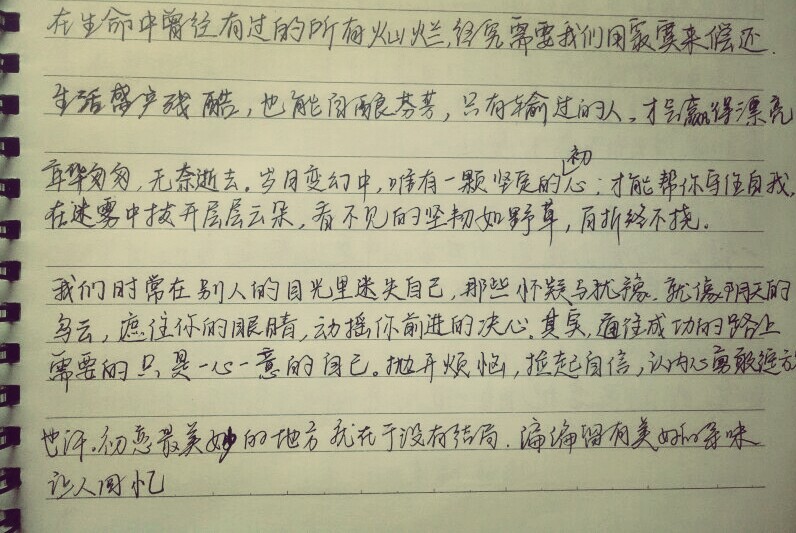 在生命中曾经有过的所有灿烂,终究需要我们用寂寞来偿还.
生活尽管残酷,也能闻酿芬芳,只有输过的人,才会赢得漂亮
年华匆匆,无奈逝去。岁月变幻中,唯有一颗坚定的初心;才能帮你守住自我,
在迷雾中拨开层层云朵,看不见的坚韧如野草,百折终不挠。
我们时常在别人的目光里迷失自己,那些怀疑与犹豫.就像阴天的
乌云,遮住你的眼睛,动摇你前进的决心。其实,通往成功的路上
需要的只是一心一意的自己。抛开烦恼,捡起自信,让内心勇敢绽放
也许。初恋最美妙的地方就在于没有结局.偏偏留有美好的余味
让人回忆